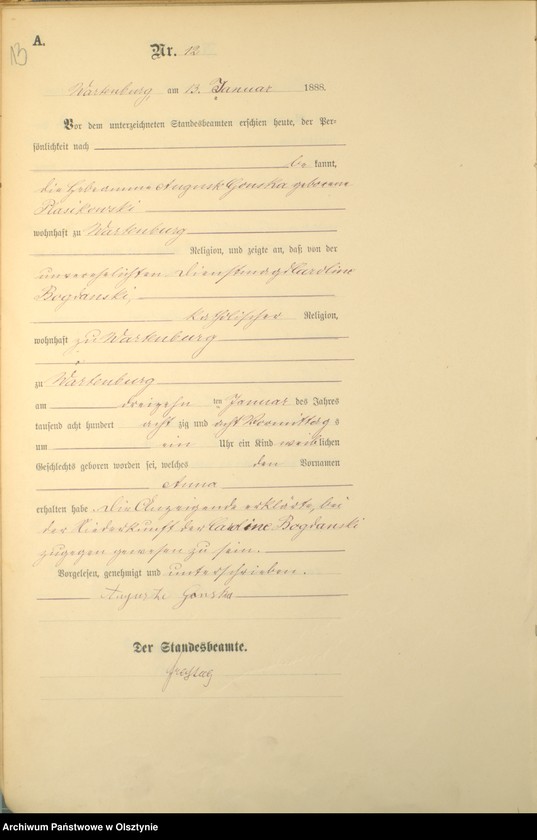 A.
13
Nr. 12
Wartenburg, am 13. Januar 1888.
Vor dem unterzeichneten Standesbeamten erschien heute, der Per-
sönlichkeit nach
be kannt,
die Hebeamme August Gonska geborene
wohnhaft zu Wartenburg
Religion, und zeigte an, daß von der
unverehelichten Dienstmagd Caroline
Bogdanski,
katholischer Religion,
wohnhaft zu Wartenburg
zu Wartenburg
am dreizehn ten Januar des Jahres
tausend acht hundert acht zig und acht Vormittag s
um ein Uhr ein Kind weiblichen
Geschlechts geboren worden sei, welches den Vornamen
Anna
erhalten habe. Die Anzeigende erklärte, bei
der Niederkunft der Caroline Bogdanski
zugegen gewesen zu sein.
Vorgelesen, genehmigt und unterschrieben.
Auguste Gonska
Der Standesbeamte.
Freitag
Archiwum Państwowe w Olsztynie